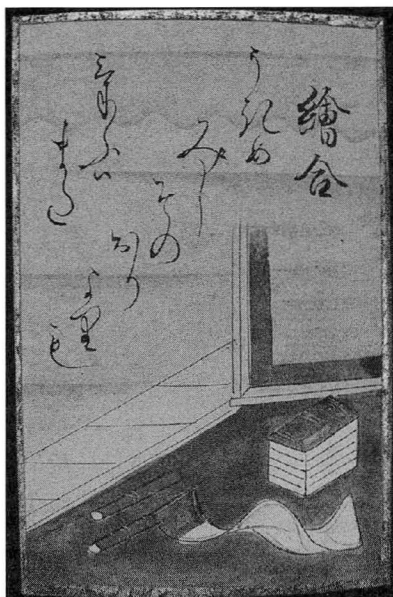 繪合
うきめ
みし
その
おり
よ里も
けふハ
また